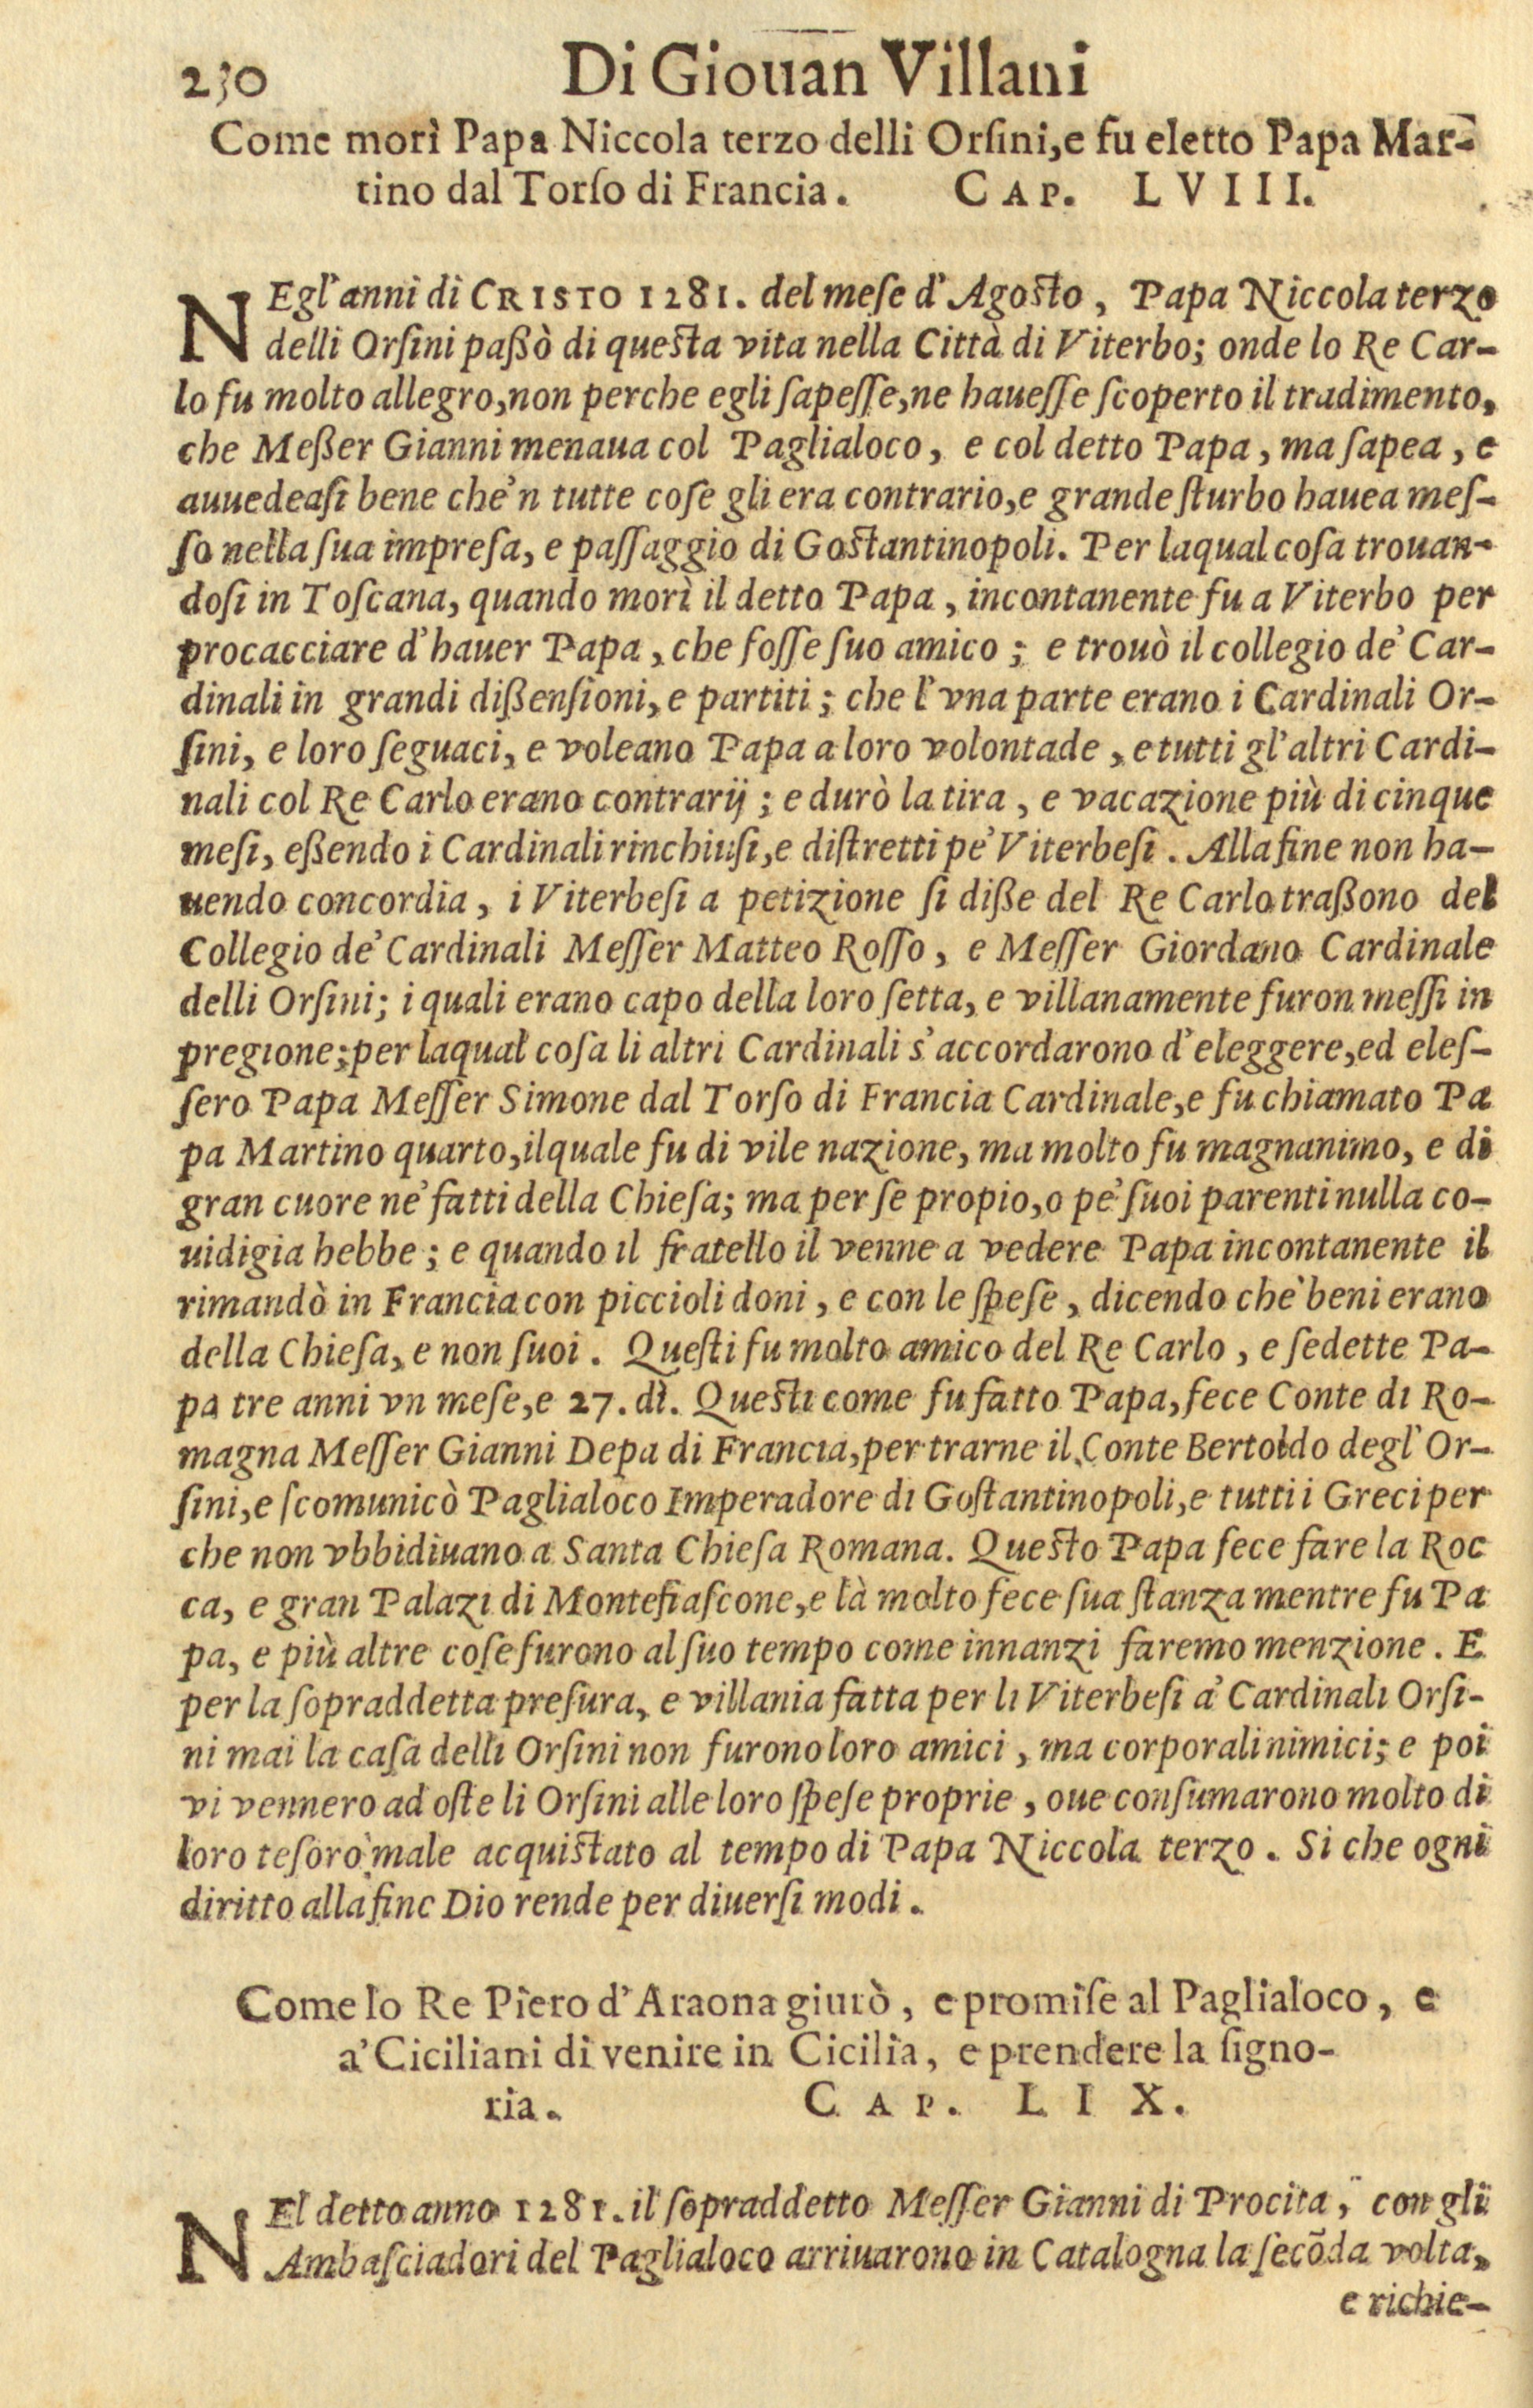 230 Di Giouan Villani
Come morì Papa Niccola terzo delli Orſini, e fu eletto Papa Mar-
tino dal Torſo di Francia. CAP. LVIII.
NEgl'anni di CRISTO 1281. del meſe d'Agoſto, Papa Niccola terzo
delli Orſini paßò di queſta vita nella Città di Viterbo; onde lo Re Car-
lo fu molto allegro, non perche egli ſapeſſe, ne haueſſe ſcoperto il tradimento,
che Meßer Gianni menaua col Paglialoco, e col detto Papa, ma ſapea, e
auuedeaſi bene che'n tutte coſe gli era contrario, e grande ſturbo hauea meſ-
ſo nella ſua impreſa, e paſſaggio di Goſtantinopoli. Per laqual coſa trouan-
doſi in Toſcana, quando morì il detto Papa, incontanente fu a Viterbo per
procacciare d'hauer Papa, che foſſe ſuo amico; e trouò il collegio de' Car-
dinali in grandi dißenſioni, e partiti; che l'vna parte erano i Cardinali Or-
ſini, e loro ſeguaci, e voleano Papa a loro volontade, e tutti gl'altri Cardi-
nali col Re Carlo erano contrarij; e durò la tira, e vacazione più di cinque
meſi, eßendo i Cardinali rinchiuſi, e diſtretti pe' Viterbeſi. Alla fine non ha-
uendo concordia, i Viterbeſi a petizione ſi diße del Re Carlo traßono del
Collegio de' Cardinali Meſſer Matteo Roſſo, e Meſſer Giordano Cardinale
delli Orſini; i quali erano capo della loro ſetta, e villanamente furon meſſi in
pregione; per laqual coſa li altri Cardinali s'accordarono d'eleggere, ed eleſ-
ſero Papa Meſſer Simone dal Torſo di Francia Cardinale, e fu chiamato Pa
pa Martino quarto, ilquale fu di vile nazione, ma molto fu magnanimo, e di
gran cuore ne' fatti della Chieſa; ma per ſe propio, o pe' ſuoi parenti nulla co-
uidigia hebbe; e quando il fratello il venne a vedere Papa incontanente il
rimandò in Francia con piccioli doni, e con le ſpeſe, dicendo che' beni erano
della Chieſa, e non ſuoi. Queſti fu molto amico del Re Carlo, e ſedette Pa-
pa tre anni vn meſe, e 27. dì. Queſti come fu fatto Papa, fece Conte di Ro-
magna Meſſer Gianni Depa di Francia, per trarne il Conte Bertoldo degl'Or-
ſini, e ſcomunicò Paglialoco Imperadore di Goſtantinopoli, e tutti i Greci per
che non vbbidiuano a Santa Chieſa Romana. Queſto Papa fece fare la Roc
ca, e gran Palazi di Montefiaſcone, e là molto fece ſua ſtanza mentre fu Pa
pa, e più altre coſe furono al ſuo tempo come innanzi faremo menzione. E
per la ſopraddetta preſura, e villania fatta per li Viterbeſi a' Cardinali Orſi-
ni mai la caſa delli Orſini non furono loro amici, ma corporali nimici; e poi
vi vennero ad oſte li Orſini alle loro ſpeſe proprie, oue conſumarono molto di
loro teſorò male acquiſtato al tempo di Papa Niccola terzo. Si che ogni
diritto alla fine Dio rende per diuerſi modi.
Come lo Re Piero d'Araona giurò, e promiſe al Paglialoco, e
a' Ciciliani di venire in Cicilia, e prendere la ſigno-
ria. CAP. LIX.
NEl detto anno 1281. il ſopraddetto Meſſer Gianni di Procita, con gli
Ambaſciadori del Paglialoco arriuarono in Catalogna la ſecõda volta,
e richie-